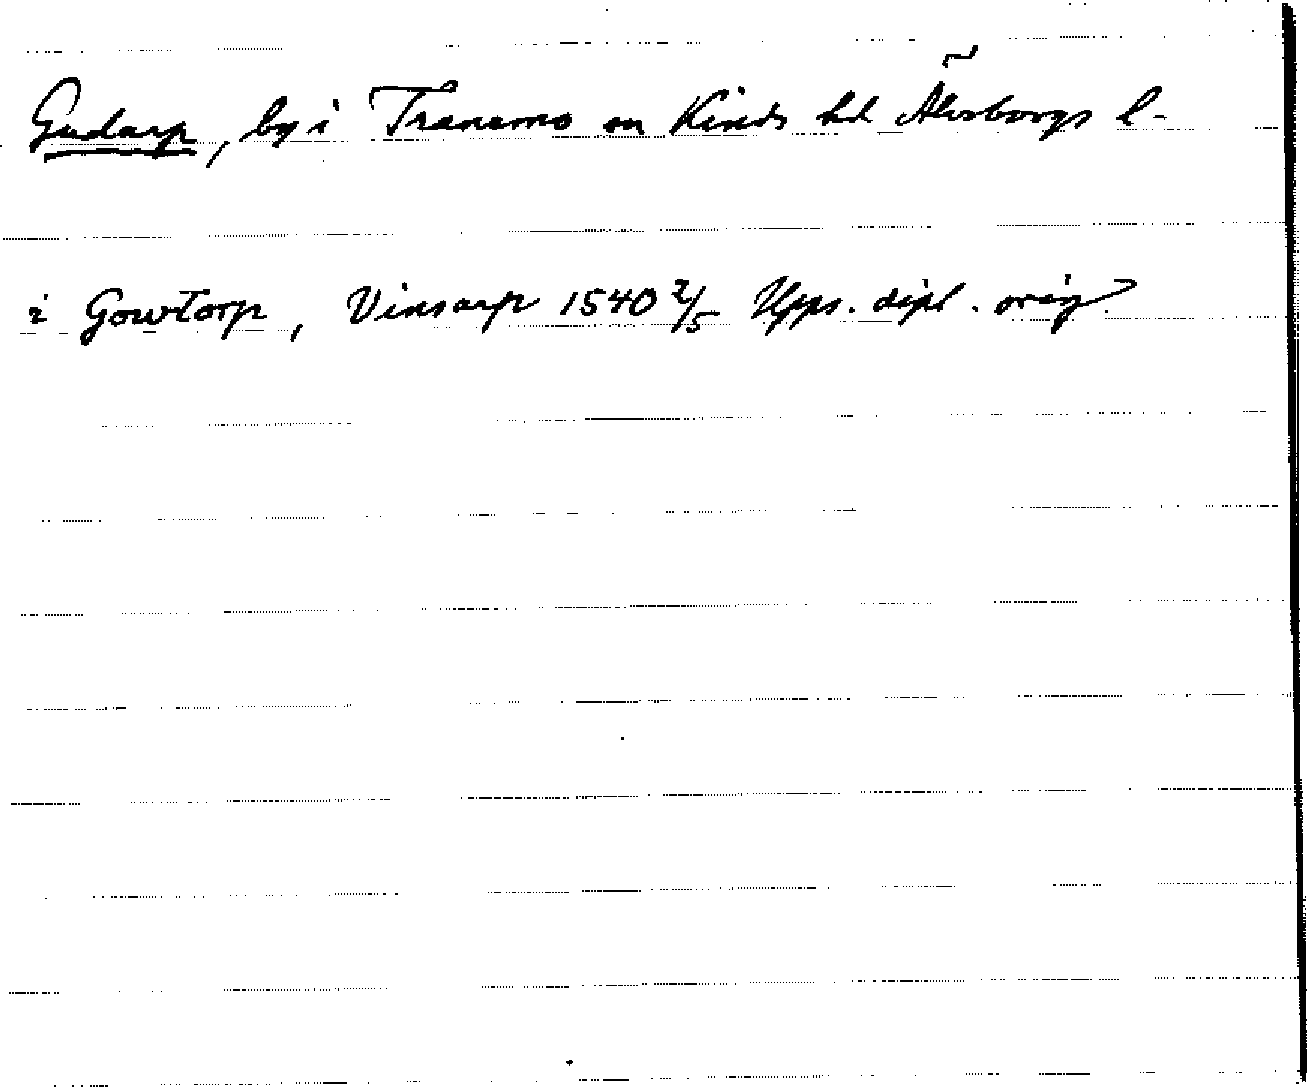 Gudarp, by i Tranemo sn Kinds hd Älvsborgs l.
i Gowtorp, Vinsarp 1540 2/5 Upps. dipl. orig